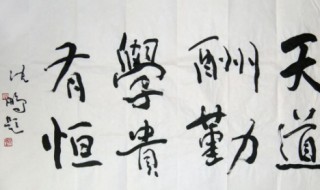 天道
酬勤
學貴
有恒
鵬題